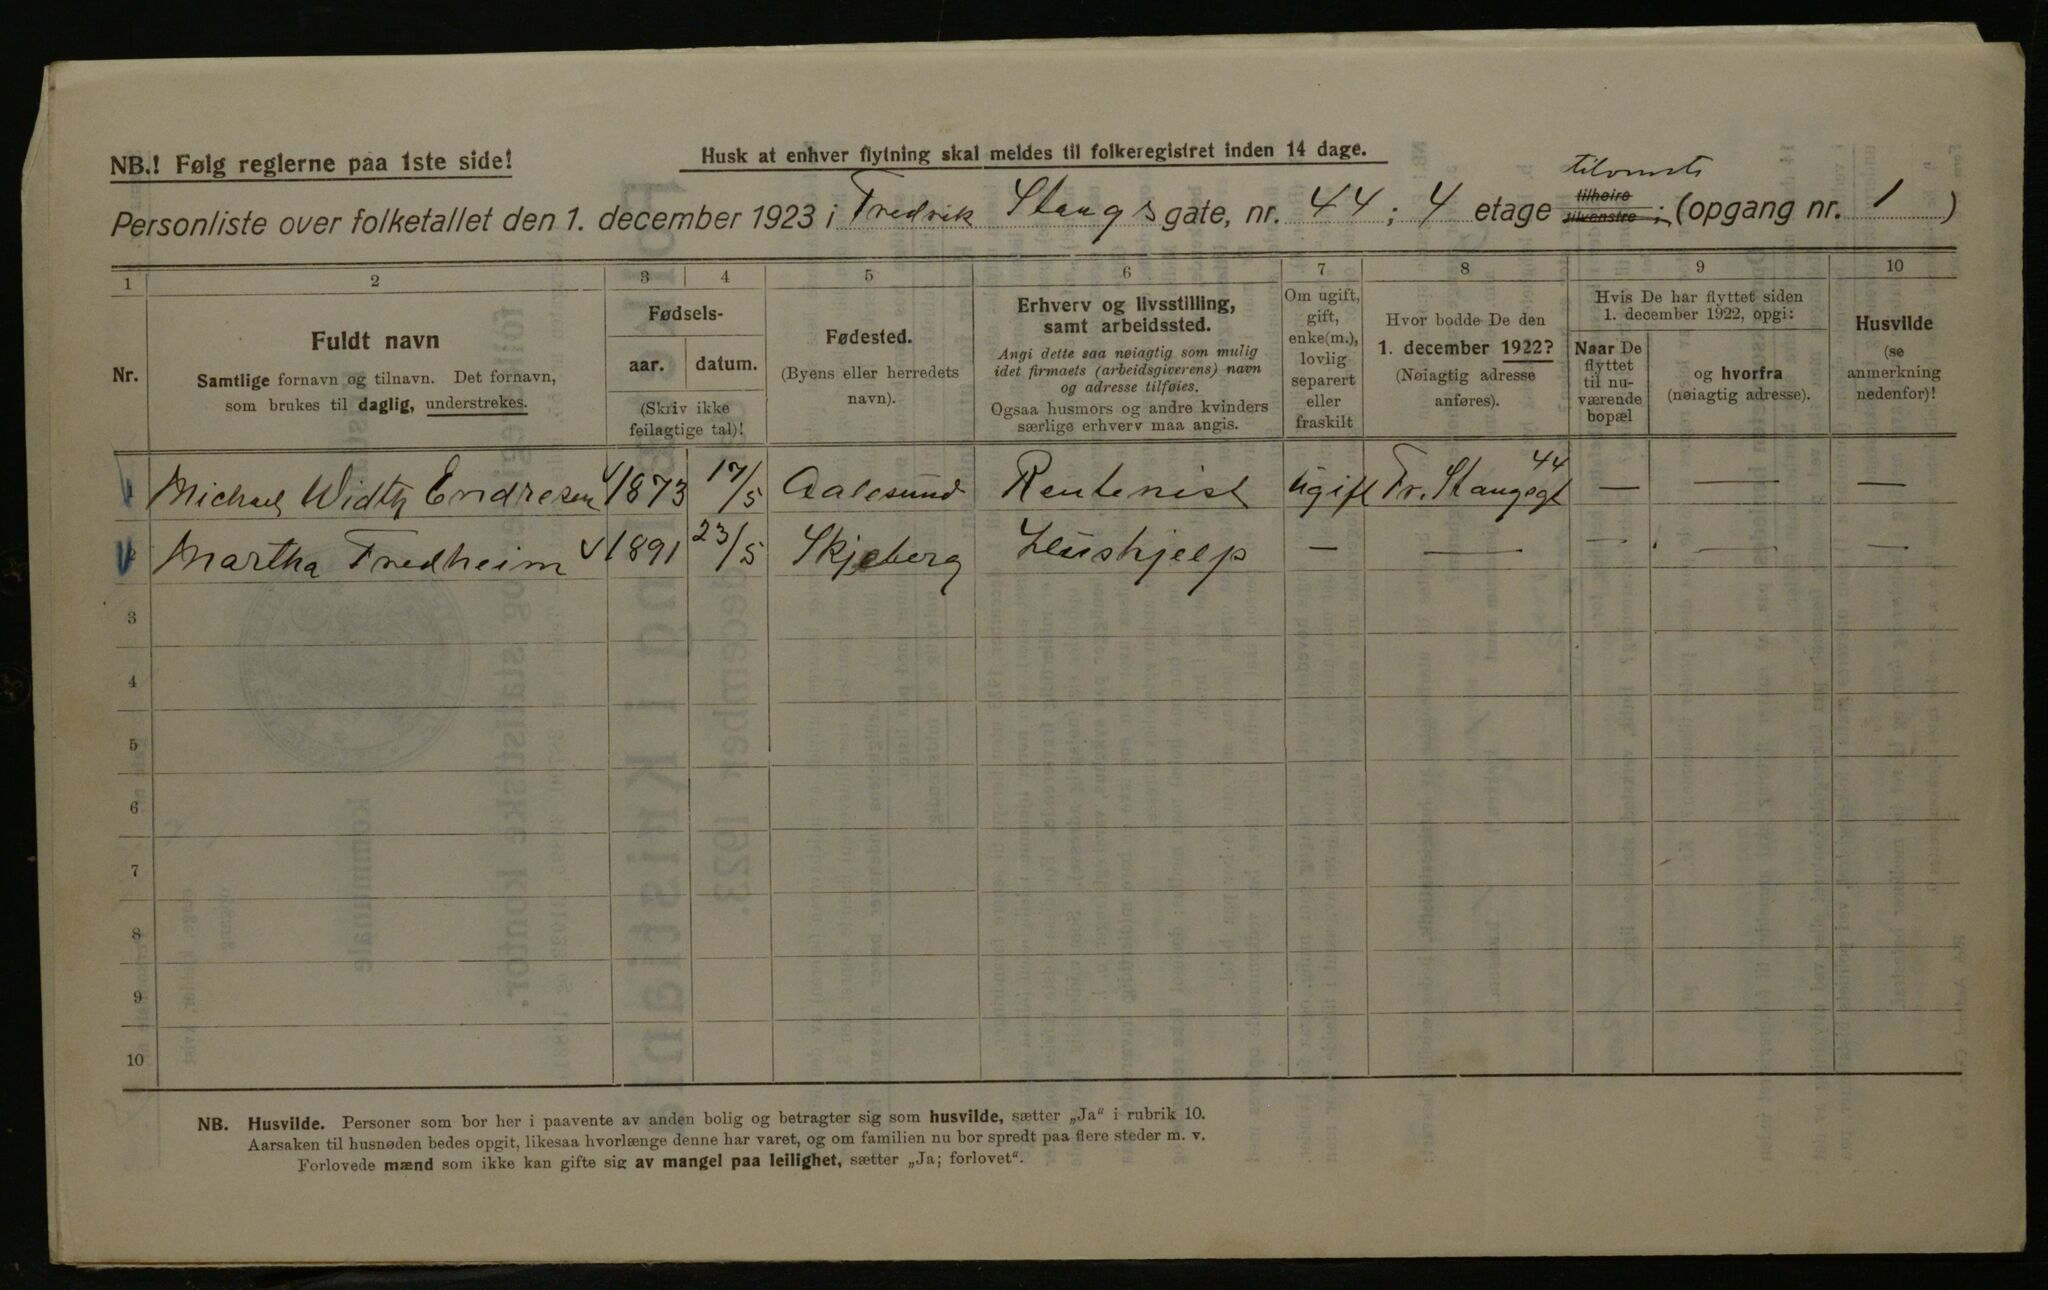 NB.! Følg reglerne paa 1ste side!
Husk at enhver flytning skal meldes til folkeregistret inden 14 dage.
Personliste over folketallet den 1. december 1923 i Fredrik Stangs gate, nr. 44; 4 etage tilhøire tilvenstre; (opgang nr. 1)
1 2 3 4 5 6 7 8 9 10
Nr.
Fuldt navn
Samtlige fornavn og tilnavn. Det fornavn,
som brukes til daglig, understrekes.
Fødsels-
aar. datum.
(Skriv ikke
feilagtige tal)!
Fødested.
(Byens eller herredets
navn).
Erhverv og livsstilling,
samt arbeidssted.
Angi dette saa nøiagtig som mulig
idet firmaets (arbeidsgiverens) navn
og adresse tilføies.
Ogsaa husmors og andre kvinders
særlige erhverv maa angis.
Om ugift,
gift,
enke(m.),
lovlig
separert
eller
fraskilt
Hvor bodde De den
1. december 1922?
(Nøiagtig adresse
anføres).
Hvis De har flyttet siden
1. december 1922, opgi:
Naar De
flyttet
til nu-
værende
bopæl
og hvorfra
(nøiagtig adresse).
Husvilde
(se
anmerkning
nedenfor)!
1 Michael Width Endresen 1873 17/5 Aalesund Rentenist Ugift Fr. Stangsgt 44 — — —
2 Martha Fredheim 1891 23/5 Skjeberg Hushjelp — — — — —
3
4
5
6
7
8
9
10
NB. Husvilde. Personer som bor her i paavente av anden bolig og betragter sig som husvilde, sætter „Ja“ i rubrik 10.
Aarsaken til husnøden bedes opgit, likesaa hvorlænge denne har varet, og om familien nu bor spredt paa flere steder m. v.
Forlovede mænd som ikke kan gifte sig av mangel paa leilighet, sætter „Ja; forlovet“.